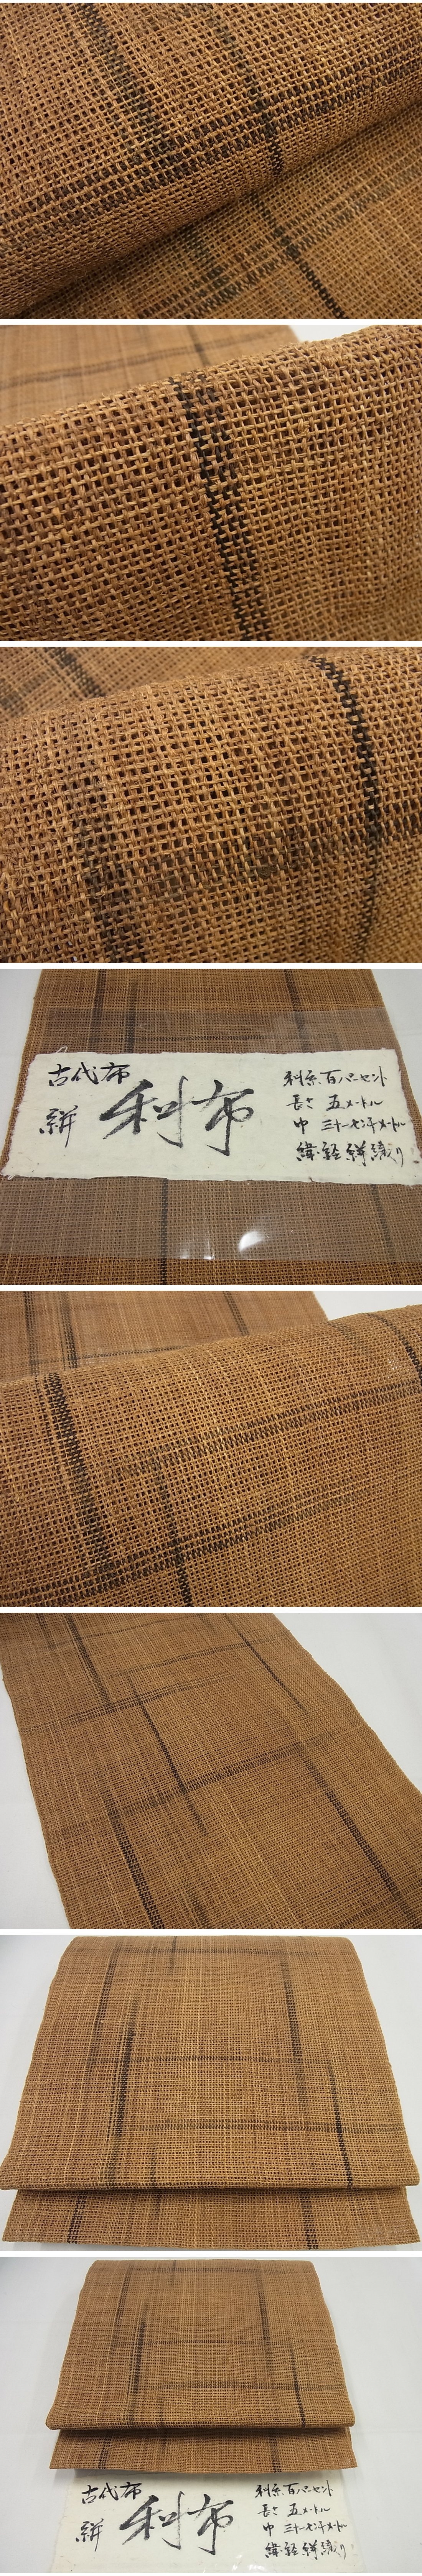 古代布
絣
科布
科糸百パーセント
長さ 五メートル
巾 三十一センチメートル
緯・経絣織り
古代布
絣
科布
科糸百パーセント
長さ 五メートル
巾 三十一センチメートル
緯・経絣織り